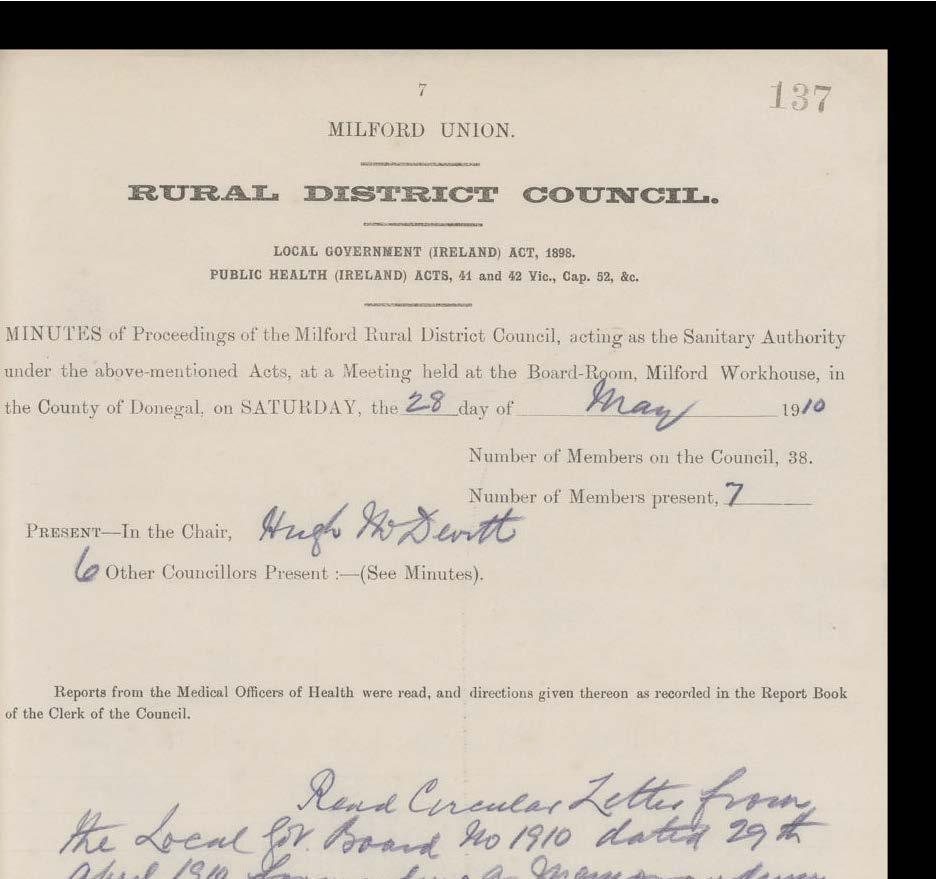 7
137
MILFORD UNION.
RURAL DISTRICT COUNCIL.
LOCAL GOVERNMENT (IRELAND) ACT, 1898.
PUBLIC HEALTH (IRELAND) ACTS, 41 and 42 Vic., Cap. 52, &c.
MINUTES of Proceedings of the Milford Rural District Council, acting as the Sanitary Authority
under the above-mentioned Acts, at a Meeting held at the Board-Room, Milford Workhouse, in
the County of Donegal, on SATURDAY, the 28 day of May 1910
Number of Members on the Council, 38.
Number of Members present, 7
PRESENT—In the Chair, Hugh McDevitt
6 Other Councillors Present :—(See Minutes).
Reports from the Medical Officers of Health were read, and directions given thereon as recorded in the Report Book
of the Clerk of the Council.
Read Circular Letter from
the Local Gov. Board No 1910 dated 29th
April 1910 a